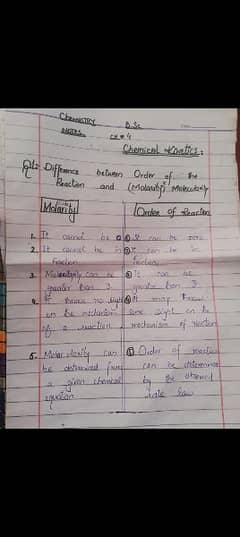 Chemistry B.Sc
NOTES Ch # 4
Chemical Kinetics:
Q1: Difference between Order of the
Reaction and (Molarity) Molecularity
Molarity Order of Reaction
1. It cannot be 0 ① It can be zero
2. It cannot be in ② It can be in
fraction fraction
3. Molecularity can be ③ It can be
greater than 3 greater than 3
4. It throws no light ④ It may throw
on the mechanism some light on the
of a reaction mechanism of reaction
5. Molecularity can ⑤ Order of reaction
be determined from can be determined
a given chemical by the observed
equation rate law